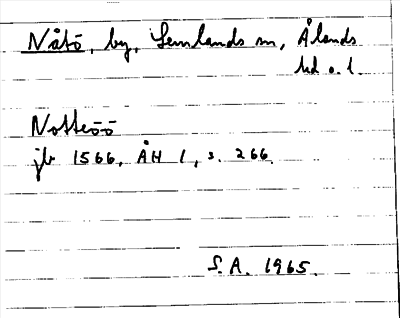 Nåtö, by, Lemlands sn, Ålands
hd o. l.
Notteöö
jb 1566, ÅH 1, s. 266.
S. A. 1965.